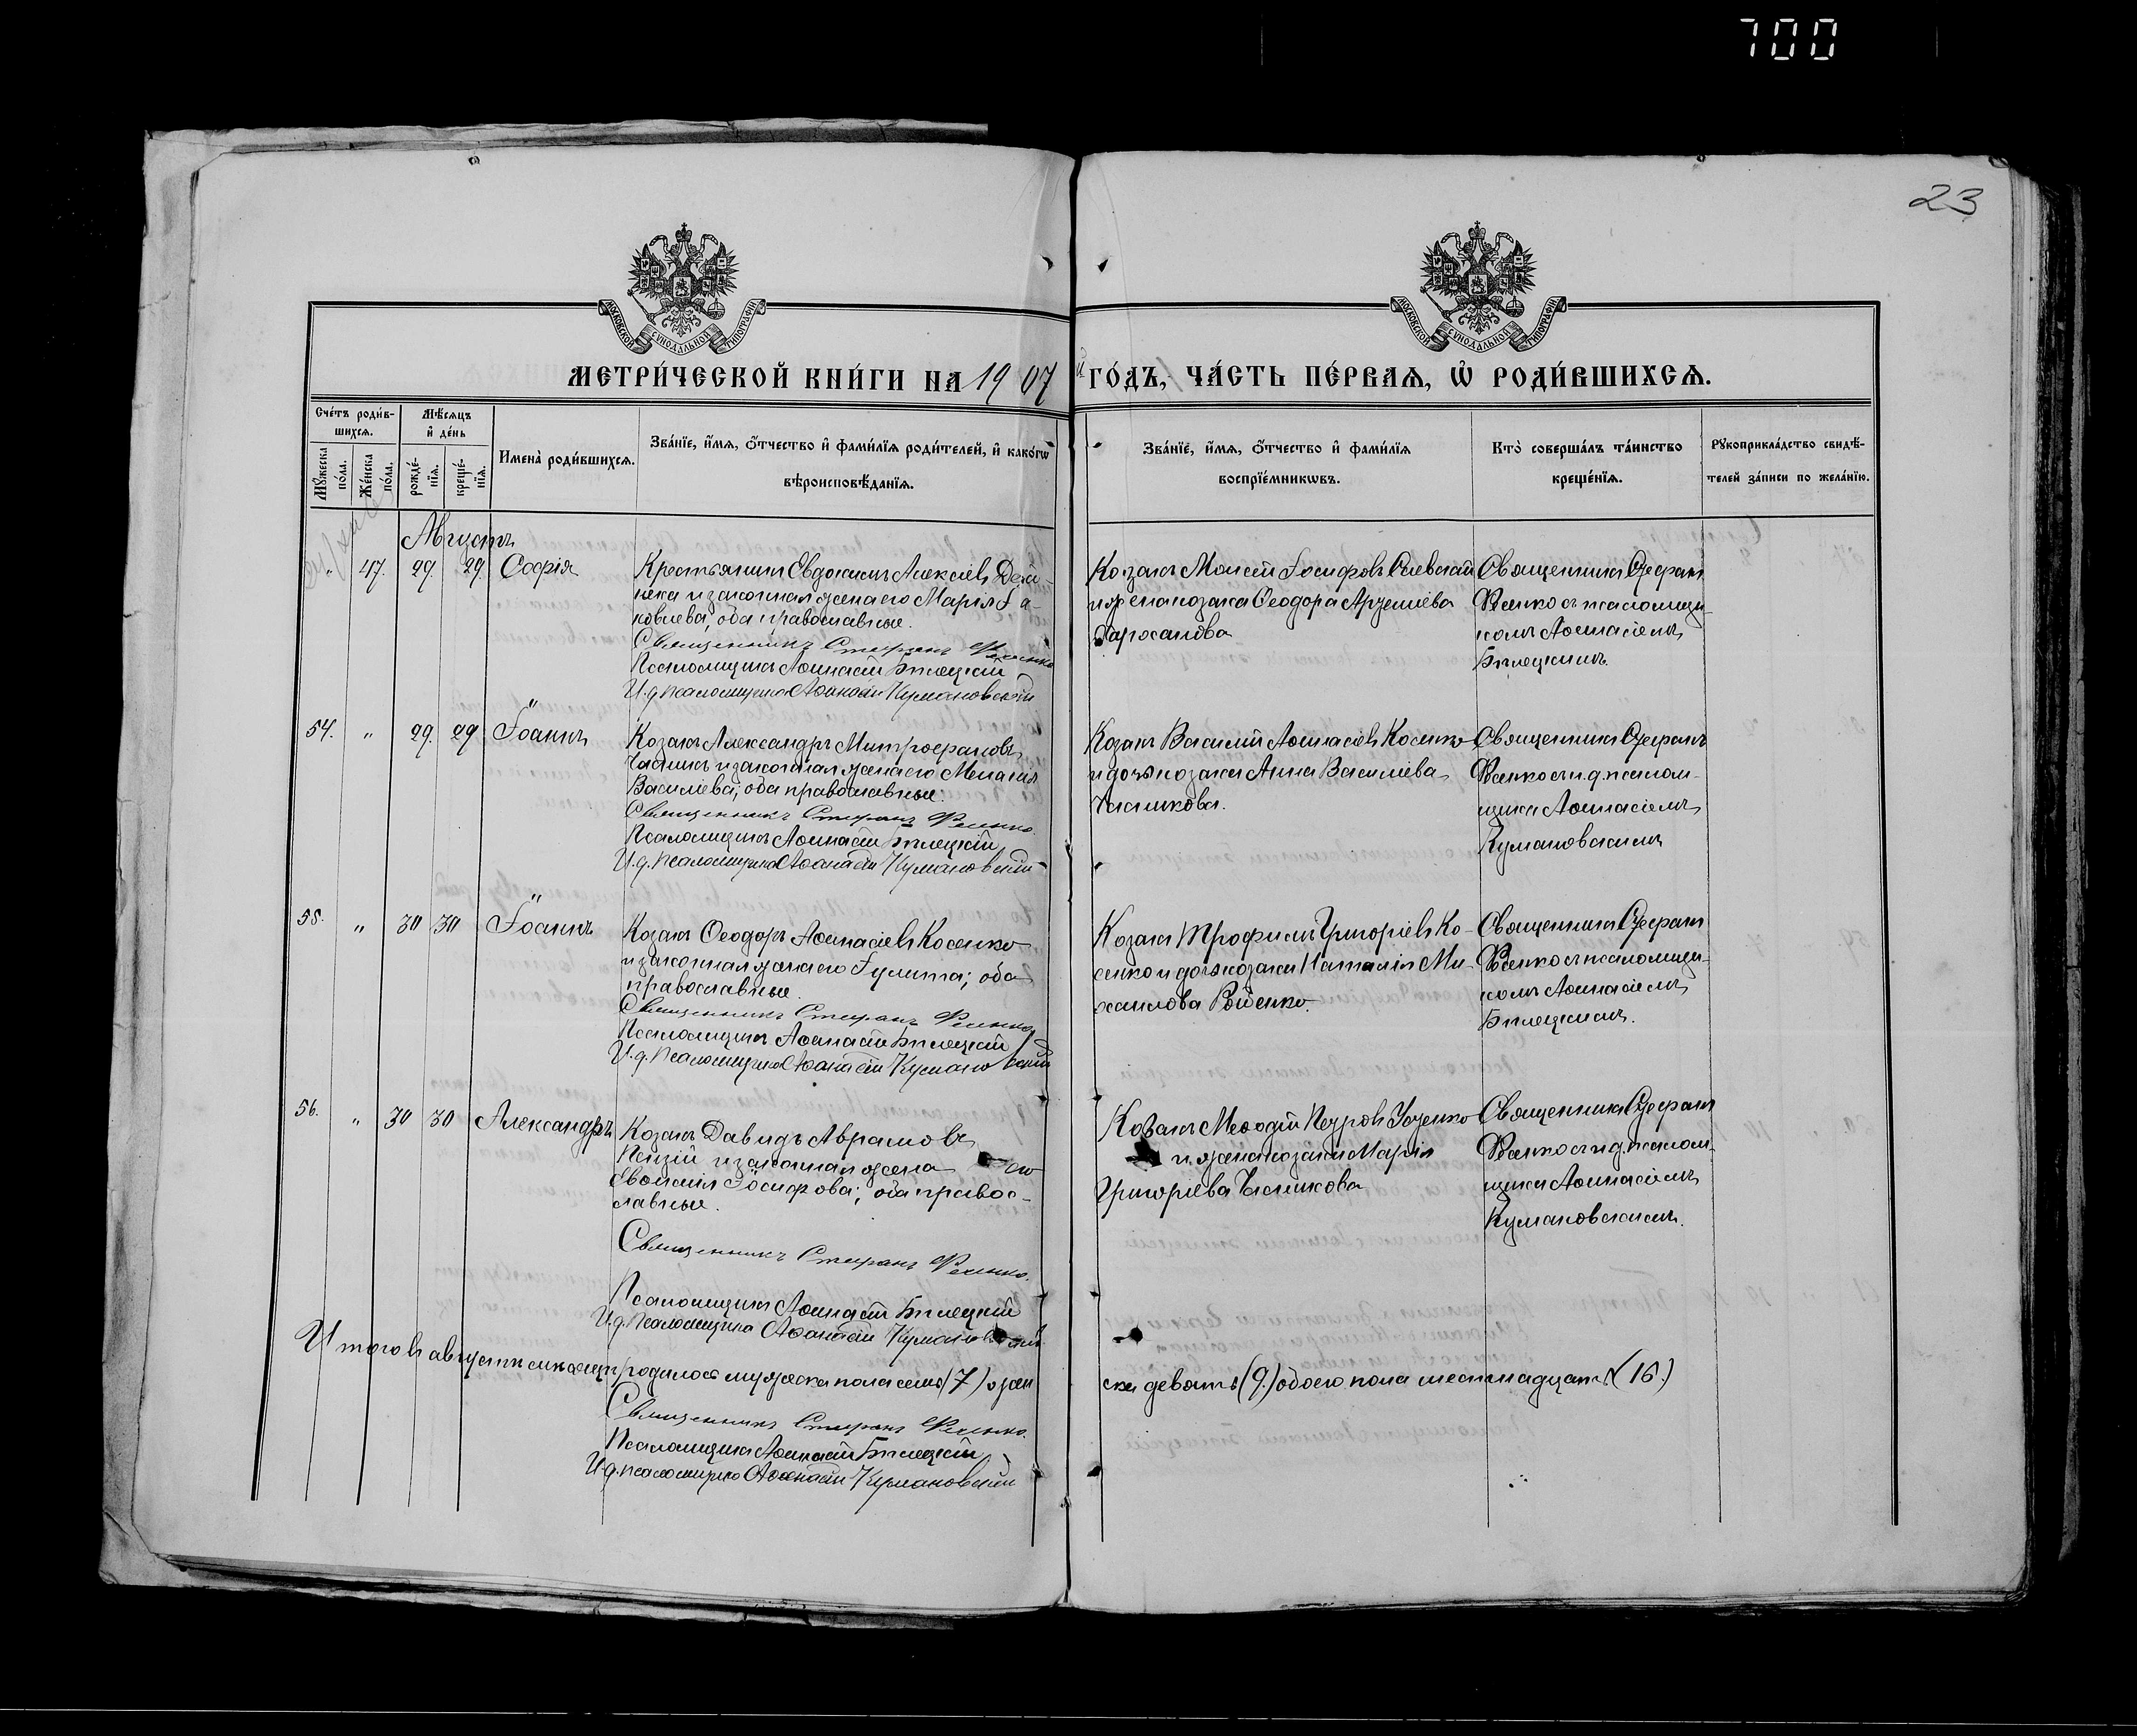 700
23
МОСКОВСКОЙ СѴНОДАЛЬНОЙ ТИПОГРАФІИ
МОСКОВСКОЙ СѴНОДАЛЬНОЙ ТИПОГРАФІИ
МЕТРИ́ЧЕСКОЙ КНИ́ГИ НА 1907 й ГО́ДЪ, ЧА́СТЬ ПЕ́РВАѦ, Ѡ҆ РОДИ́ВШИХСѦ.
Сче́тъ роди́в-
шихсѧ.
Мꙋ́жеска по́ла.
Же́нска по́ла.
Мѣ́сѧцъ
и҆ де́нь
рожде́-
нїѧ.
креще́-
нїѧ.
Имена̀ роди́вшихсѧ.
Зва́нїе, и҆́мѧ, ѻ҆́тчество и҆ фами́лїѧ роди́телей, и҆ како́гѡ
вѣроисповѣ́данїѧ.
Зва́нїе, и҆́мѧ, ѻ҆́тчество и҆ фами́лїѧ
воспрїе́мникѡвъ.
Кто̀ соверша́лъ та́инство
креще́нїѧ.
Рꙋкоприкла́дство свидѣ́-
телей за́писи по жела́нїю.
Августъ
" 47. 29. 29. Софія
Крестьянинъ Евдокимъ Алексіевъ Дей-
нека и законная жена его Марія Іа-
ковлева; оба православные.
Священникъ Стефанъ
Псаломщикъ Аѳанасій Билецкій
И. д. псаломщика Аѳанасій Кумановскій
Козакъ Моисей Іосифовъ
и жена козака Ѳеодора
Священникъ Стефанъ
съ псаломщи-
комъ Аѳанасіемъ
Билецкимъ.
54. " 29. 29 Іоаннъ
Козакъ Александръ Митрофановъ
Часникъ и законная жена его Меланія
Василіева; оба православные.
Священникъ Стефанъ
Псаломщикъ Аѳанасій Билецкій
И. д. псаломщика Аѳанасій Кумановскій
Козакъ Василій Аѳанасіевъ Косенко
и дочь козака Анна Василіева
Часникова.
Священникъ Стефанъ
съ и. д. псалом-
щика Аѳанасіемъ
Кумановскимъ
55. " 30 30 Іоаннъ
Козакъ Ѳеодоръ Аѳанасіевъ Косенко
и законная жена его Іулитта; оба
православные.
Священникъ Стефанъ
Псаломщикъ Аѳанасій Билецкій
И. д. псаломщика Аѳанасій Кумановскій
Козакъ Трофимъ Григоріевъ Ко-
сенко и дочь козака Наталія Ми-
хаилова
Священникъ Стефанъ
съ псаломщи-
комъ Аѳанасіемъ
Билецкимъ.
56. " 30 30 Александръ
Козакъ Давидъ Аврамовъ
и законная жена его
Евфимія Іосифова; оба правос-
лавные.
Священникъ Стефанъ
Псаломщикъ Аѳанасій Билецкій
И. д. псаломщика Аѳанасій Кумановскій
Козакъ Меѳодій Петровъ Уценко
и жена козака Марія
Григоріева Часникова
Священникъ Стефанъ
съ и. д. псалом-
щика Аѳанасіемъ
Кумановскимъ.
Итого въ августѣ мѣсяцѣ родилось мужеска пола семь (7) а жен
ска девять (9.) обоего пола шестнадцать (16.)
Священникъ Стефанъ
Псаломщикъ Аѳанасій Билецкій
И. д. псаломщика Аѳанасій Кумановскій